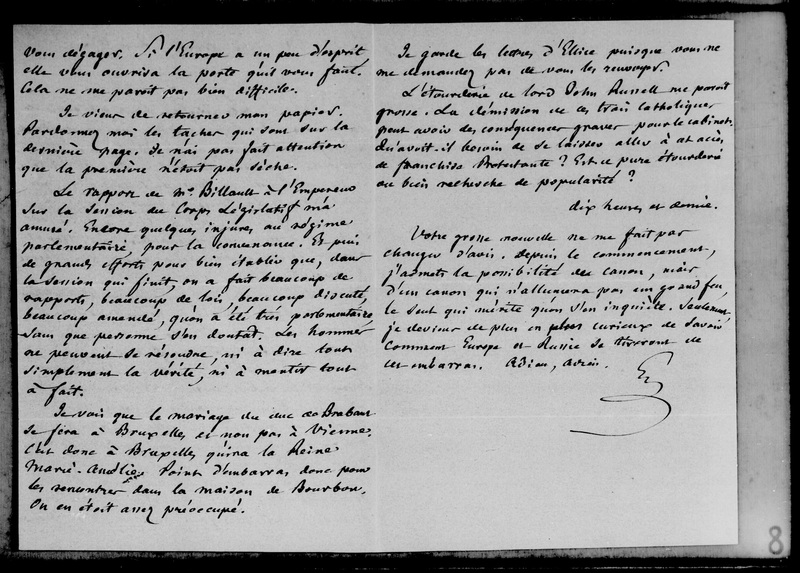 vous dégager. Si l'Europe a un peu d'esprit
elle vous ouvrira la porte qu'il vous faut.
Cela ne me paroit pas bien difficile.
Je viens de retourner mon papier.
Pardonnez moi les taches qui sont sur la
dernière page. Je n'ai pas fait attention
que la première n'étoit pas sèche.
Le rapport de Mr. Billault à l'Empereur
sur la Session du Corps Législatif m'a
amusé. Encore quelques injures au régime
parlementaire, pour la convenance. Et puis
de grands efforts pour bien établir que, dans
la session qui finit, on a fait beaucoup de
rapports, beaucoup de lois, beaucoup discuté,
beaucoup amendé, qu'on a été très parlementaire
sans que personne s'en doutat. Les hommes
ne peuvent se résoudre, ni à dire tout
simplement la vérité, ni à mentir tout
à fait.
Je vois que le mariage du duc de Brabant
se fera à Bruxelles et non pas à Vienne.
C'est donc à Bruxelles qu'ira la Reine
Marie-Amélie. Point d'embarras donc pour
les rencontres dans la maison de Bourbon.
On en étoit assez préoccupé.
Je garde les lettres d'Ellice puisque vous ne
me demandez pas de vous les renvoyer.
L'étourderie de lord John Russell me paroit
grosse. La démission de ces trois catholiques
peut avoir des conséquences graves pour le cabinet.
Qu'avoit-il besoin de se laisser aller à cet accès
de franchise Protestante ? Est-ce pure étourderie
ou bien recherche de popularité ?
dix heures et demie.
Votre grosse nouvelle ne me fait pas
changer d'avis. Depuis le commencement,
j'admets la possibilité du canon, mais
d'un canon qui n'allumera pas un grand feu,
le seul qui mérite qu'on s'en inquiète. Seulement,
je deviens de plus en plus curieux de savoir
comment Europe et Russie se tireront de
cet embarras. Adieu, adieu.
8